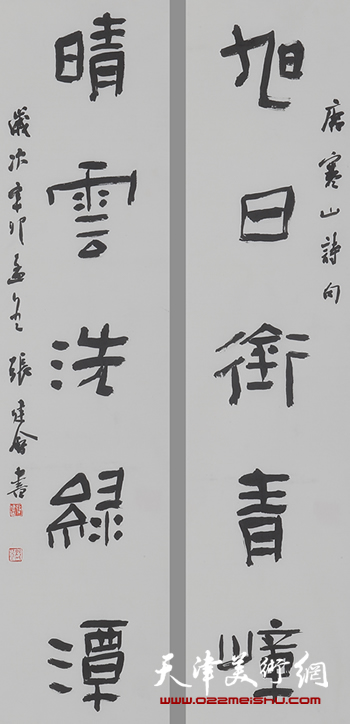 唐寒山詩句
旭日銜青嶂
晴雲洗緑潭
歲次辛卯孟冬張建會書
天津美術網
www.022meishu.com